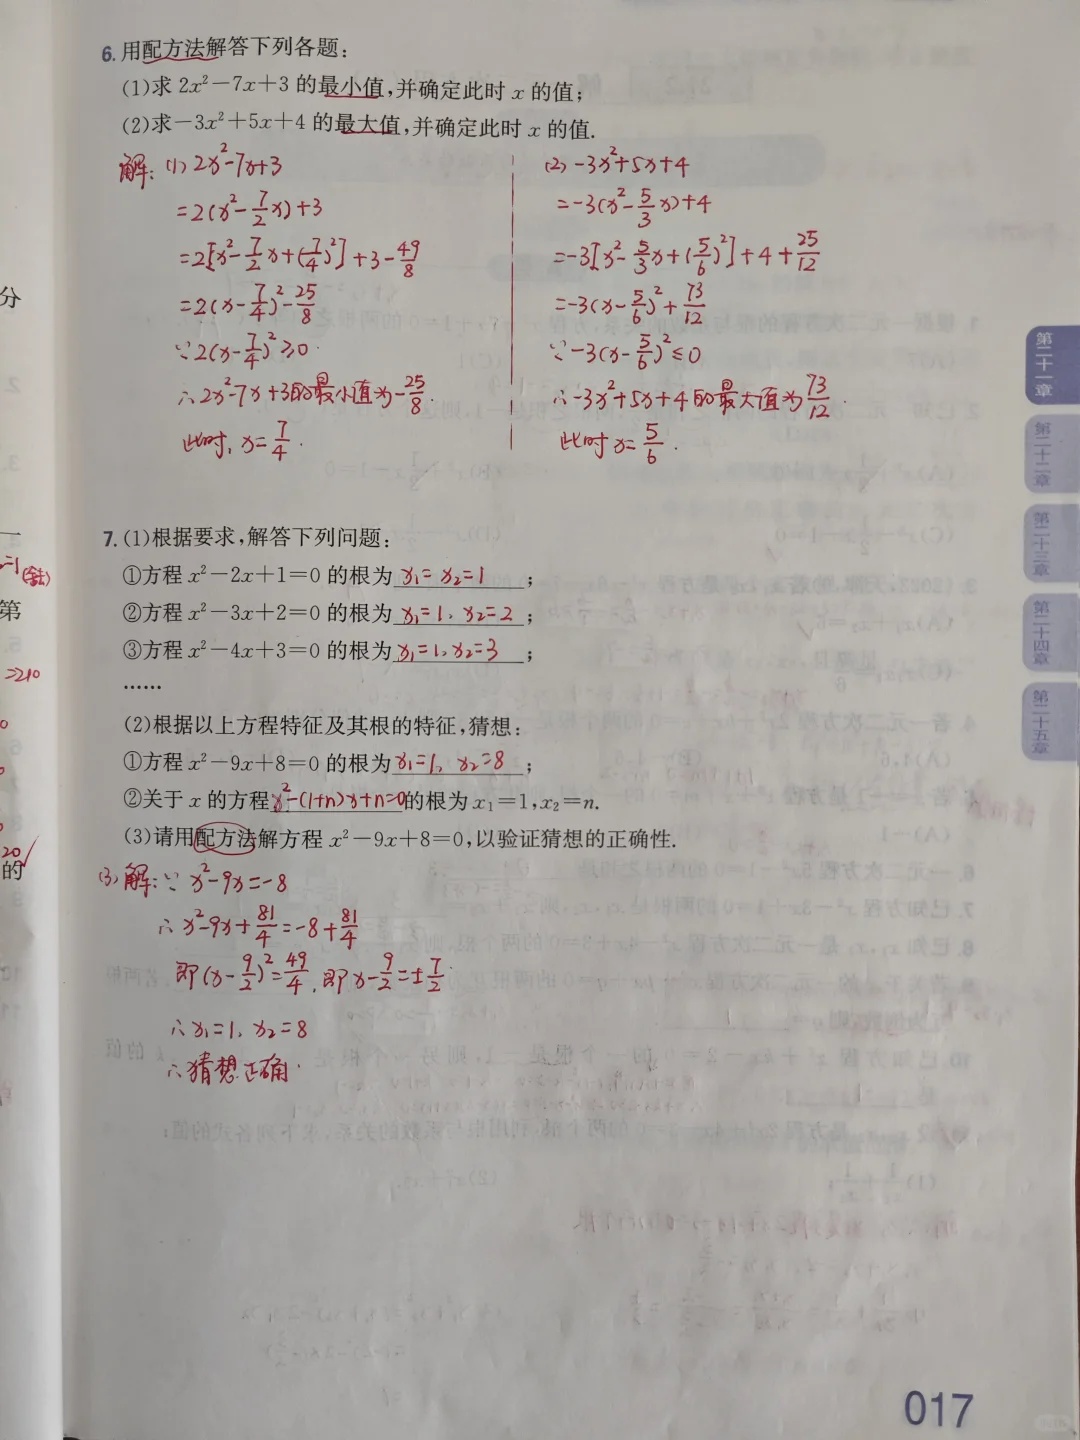 6. 用配方法解答下列各题:
(1)求 2x²-7x+3 的最小值,并确定此时 x 的值;
(2)求-3x²+5x+4 的最大值,并确定此时 x 的值.
解: (1) 2x²-7x+3
=2(x²-7/2x)+3
=2[x²-7/2x+(7/4)²]+3-49/8
=2(x-7/4)²-25/8
∵2(x-7/4)²≥0.
∴2x²-7x+3的最小值为-25/8.
此时, x=7/4.
(2) -3x²+5x+4
=-3(x²-5/3x)+4
=-3[x²-5/3x+(5/6)²]+4+25/12
=-3(x-5/6)²+73/12
∵-3(x-5/6)²≤0
∴-3x²+5x+4的最大值为73/12.
此时x=5/6.
7. (1)根据要求,解答下列问题:
①方程 x²-2x+1=0 的根为 x₁=x₂=1 ;
②方程 x²-3x+2=0 的根为 x₁=1, x₂=2 ;
③方程 x²-4x+3=0 的根为 x₁=1, x₂=3 ;
……
(2)根据以上方程特征及其根的特征,猜想:
①方程 x²-9x+8=0 的根为 x₁=1, x₂=8 ;
②关于 x 的方程 x²-(1+n)x+n=0 的根为 x₁=1,x₂=n.
(3)请用配方法解方程 x²-9x+8=0,以验证猜想的正确性.
(3) 解: ∵x²-9x=-8
∴x²-9x+81/4=-8+81/4
即(x-9/2)²=49/4, 即x-9/2=±7/2
∴x₁=1, x₂=8
∴猜想正确.
第二十一章
第二十二章
第二十三章
第二十四章
第二十五章
分
第
的
017